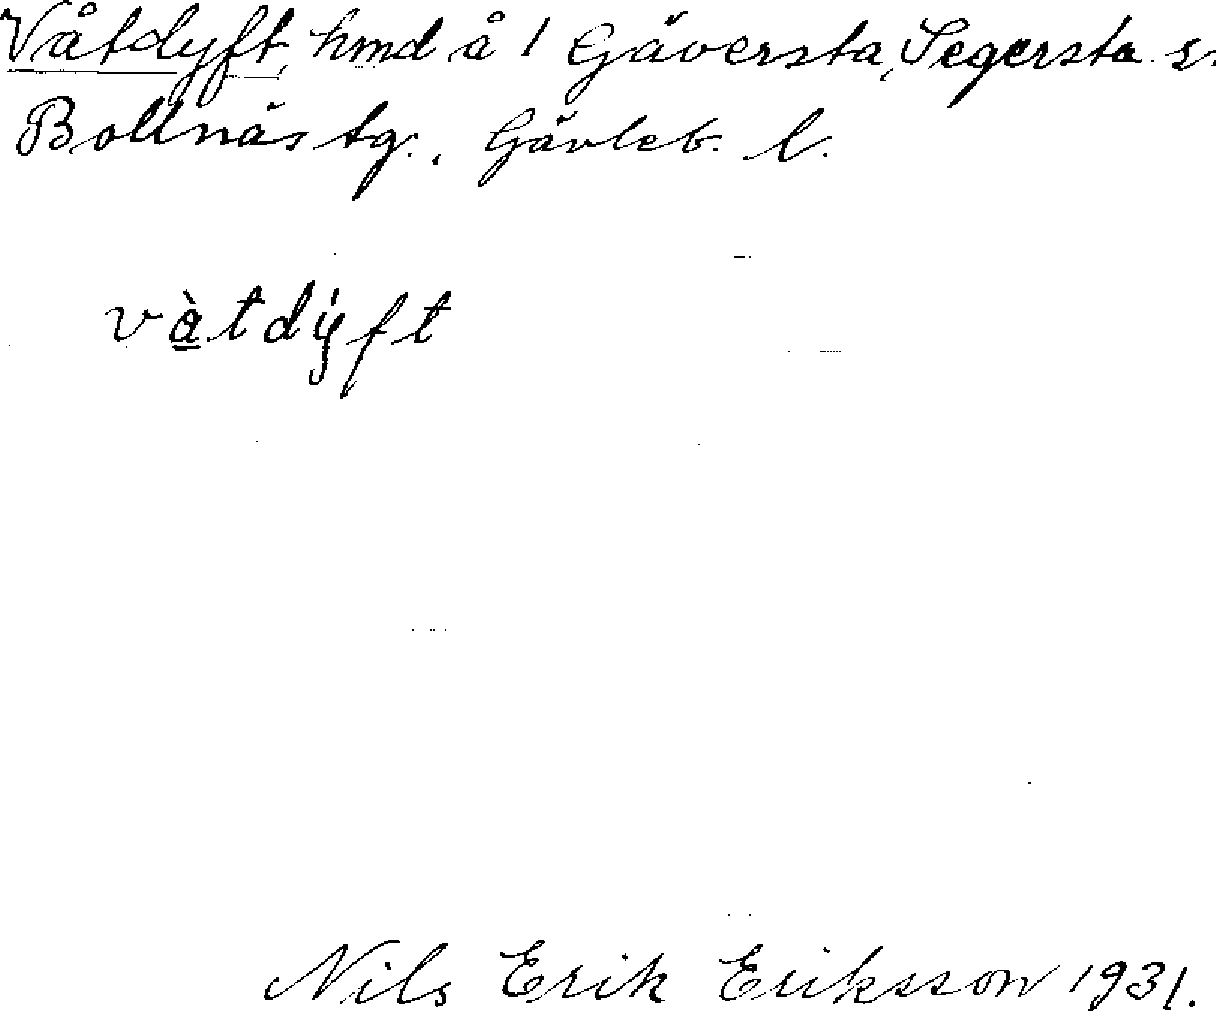 Våtdyft, hmd å 1 Gäversta, Segersta s.
Bollnäs tg., Gävleb. l.
vàtdẏft
Nils Erik Eriksson 1931.